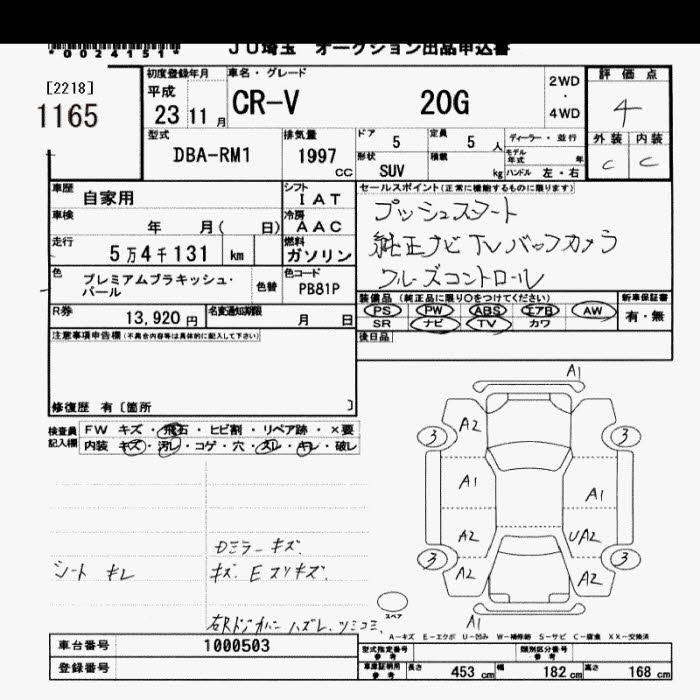 *0024151*
JU埼玉 オークション出品申込書
[2218]
1165
初度登録年月
平成
23 11 月
車名・グレード
CR-V 20G
2WD
・
4WD
評価点
4
外装 内装
C C
型式
DBA-RM1
排気量
1997 CC
ドア 5
定員 5 人
ディーラー・並行
モデル年式 年
形状 SUV
積載 kg
ハンドル 左・右
車歴 自家用
シフト IAT
車検 年 月( 日)
冷房 AAC
走行 5万4千131 km
燃料 ガソリン
色 プレミアムブラキッシュ・
パール
色替
色コード PB81P
R券 13,920 円
名変通知期限 月 日
セールスポイント(正常に機能するものに限ります)
プッシュスタート
純正ナビTVバックカメラ
クルーズコントロール
装備品(純正品に限り○をつけてください)
PS PW ABS エアB AW
SR ナビ TV カワ
新車保証書
有・無
後日品
注意事項申告欄(不具合内容等は具体的に記入して下さい)
修復歴 有〔箇所 〕
検査員記入欄
FW キズ・飛石・ヒビ割・リペア跡・×要
内装 キズ・汚レ・コゲ・穴・スレ・キレ・破レ
シート キレ
Dミラーキズ
キズ.Eスリキズ.
A1
3 A2 3
A1 A1
A2 UA2
3 A2 A2 3
A1
スペア
A-キズ E-エクボ U-凹み W-補修跡 S-サビ C-腐食 XX-交換済
車台番号 1000503
登録番号
型式指定番号
参考
類別区分番号
参考
車庫証明用
参考
長さ 453 cm 幅 182 cm 高さ 168 cm